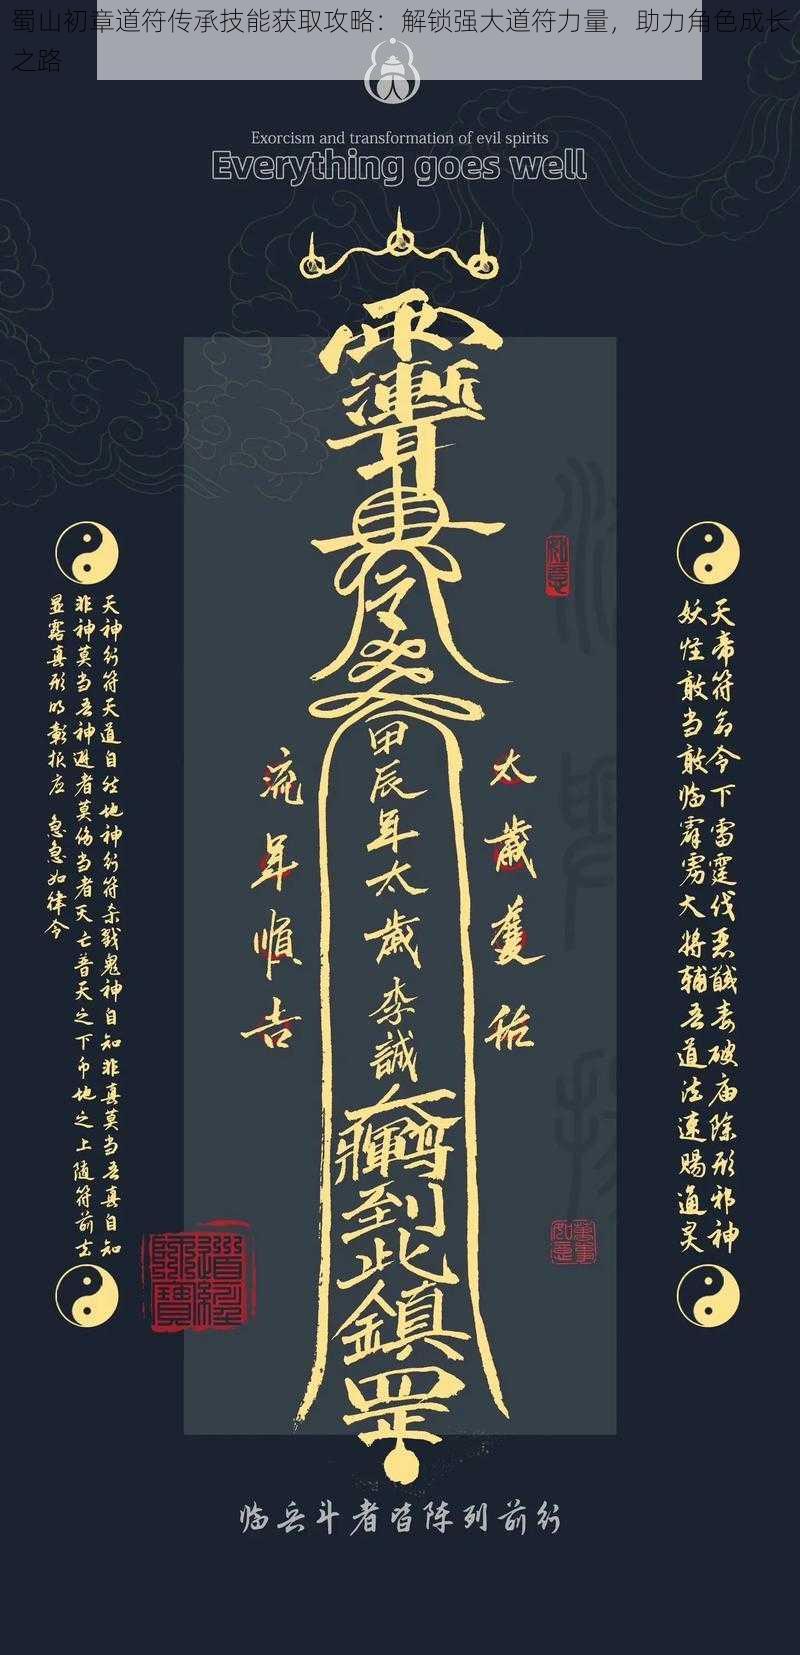 蜀山初章道符传承技能获取攻略：解锁强大道符力量，助力角色成长
之路
Exorcism and transformation of evil spirits
Everything goes well
令
甲辰年太歲李誠
到此鎮
罡
太歲護祐
流年順吉
天帝符命令下雷霆伐恶馘毒破庙除形邪神
妖怪敢当敢临霹雳大将辅吾道法速赐通灵
天神行符天道自然地神行符杀戮鬼神自知非真莫当吾真自知
非神莫当吾神避者莫伤当者灭亡普天之下币地之上随符前去
显露真形明彰报应 急急如律令
如意
萬事如意
道經師寶
临兵斗者皆阵列前行